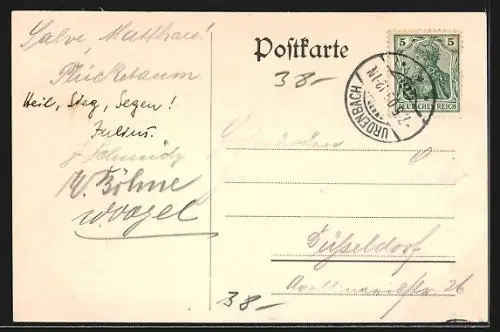 Salve, Matthaee!
Plückebaum
Heil, Sieg, Segen!
Julius.
J. Schmitz
W. Böhme
W. Vogel
Postkarte
38-
5 5
DEUTSCHES REICH
URDENBACH
12-1N
Düsseldorf
26
38-